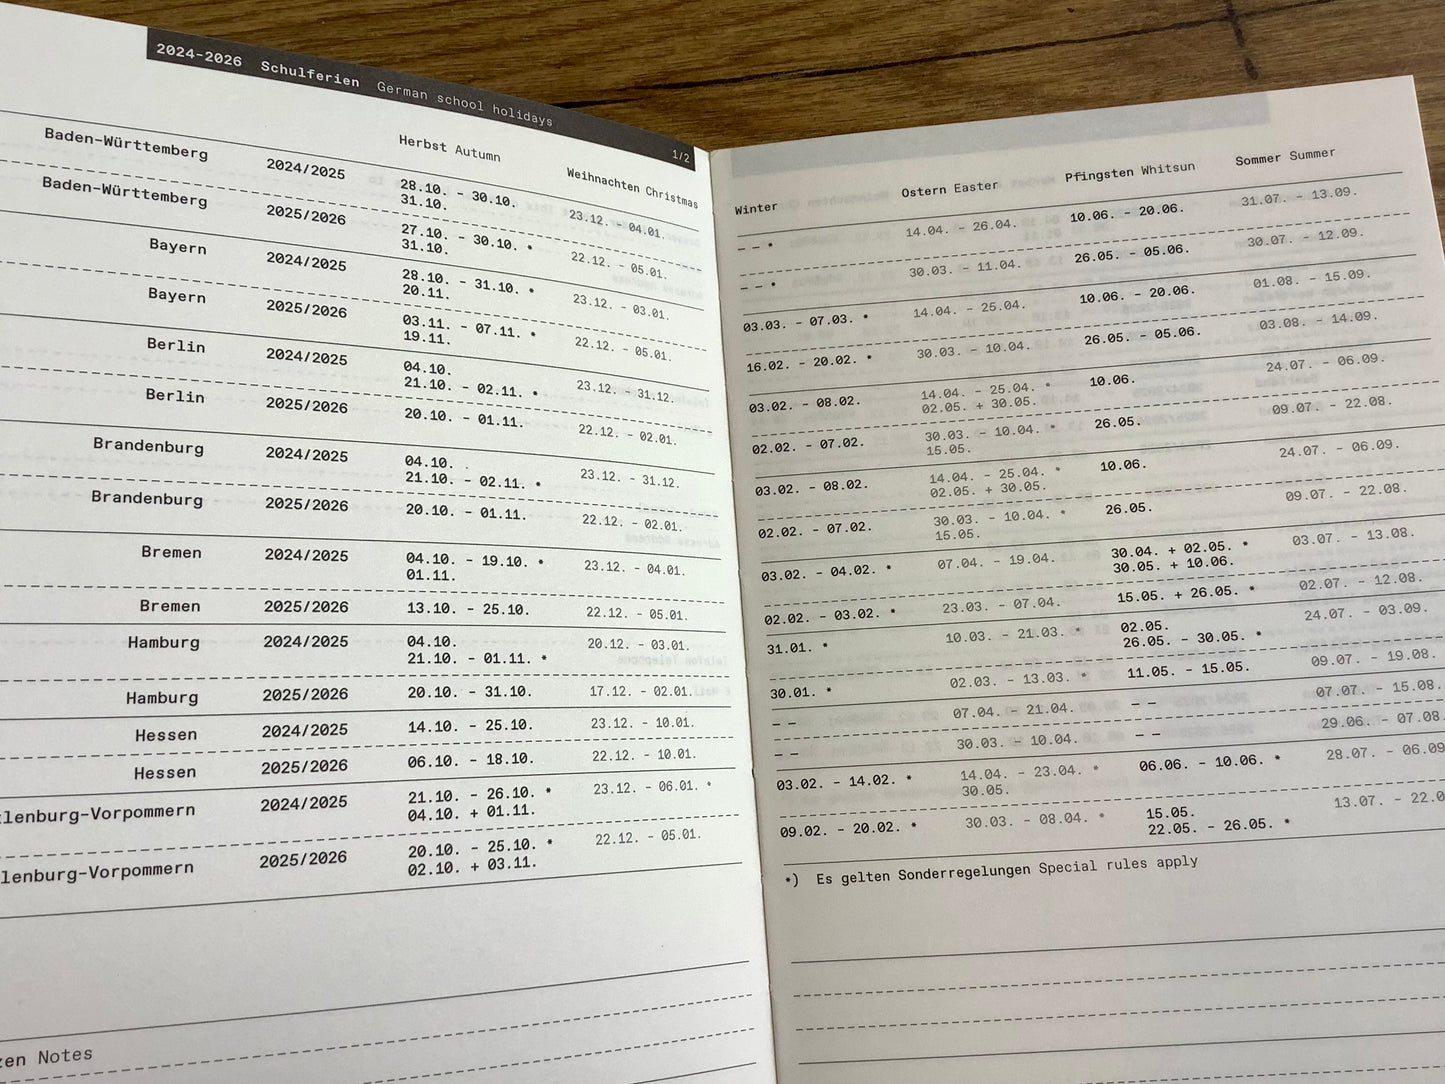 2024–2026 Schulferien German school holidays 1/2
Herbst Autumn Weihnachten Christmas
Baden–Württemberg 2024/2025 28.10. – 30.10. 23.12. – 04.01.
31.10.
Baden–Württemberg 2025/2026 27.10. – 30.10. * 22.12. – 05.01.
31.10.
Bayern 2024/2025 28.10. – 31.10. * 23.12. – 03.01.
20.11.
Bayern 2025/2026 03.11. – 07.11. * 22.12. – 05.01.
19.11.
Berlin 2024/2025 04.10. 23.12. – 31.12.
21.10. – 02.11. *
Berlin 2025/2026 20.10. – 01.11. 22.12. – 02.01.
Brandenburg 2024/2025 04.10. . 23.12. – 31.12.
21.10. – 02.11. *
Brandenburg 2025/2026 20.10. – 01.11. 22.12. – 02.01.
Bremen 2024/2025 04.10. – 19.10. * 23.12. – 04.01.
01.11.
Bremen 2025/2026 13.10. – 25.10. 22.12. – 05.01.
Hamburg 2024/2025 04.10. 20.12. – 03.01.
21.10. – 01.11. *
Hamburg 2025/2026 20.10. – 31.10. 17.12. – 02.01.
Hessen 2024/2025 14.10. – 25.10. 23.12. – 10.01.
Hessen 2025/2026 06.10. – 18.10. 22.12. – 10.01.
lenburg–Vorpommern 2024/2025 21.10. – 26.10. * 23.12. – 06.01. *
04.10. + 01.11.
lenburg–Vorpommern 2025/2026 20.10. – 25.10. * 22.12. – 05.01.
02.10. + 03.11.
zen Notes
Winter Ostern Easter Pfingsten Whitsun Sommer Summer
– – * 14.04. – 26.04. 10.06. – 20.06. 31.07. – 13.09.
– – * 30.03. – 11.04. 26.05. – 05.06. 30.07. – 12.09.
03.03. – 07.03. * 14.04. – 25.04. 10.06. – 20.06. 01.08. – 15.09.
16.02. – 20.02. * 30.03. – 10.04. 26.05. – 05.06. 03.08. – 14.09.
03.02. – 08.02. 14.04. – 25.04. * 10.06. 24.07. – 06.09.
02.05. + 30.05.
02.02. – 07.02. 30.03. – 10.04. * 26.05. 09.07. – 22.08.
15.05.
03.02. – 08.02. 14.04. – 25.04. * 10.06. 24.07. – 06.09.
02.05. + 30.05.
02.02. – 07.02. 30.03. – 10.04. * 26.05. 09.07. – 22.08.
15.05.
03.02. – 04.02. * 07.04. – 19.04. 30.04. + 02.05. * 03.07. – 13.08.
30.05. + 10.06.
02.02. – 03.02. * 23.03. – 07.04. 15.05. + 26.05. * 02.07. – 12.08.
31.01. * 10.03. – 21.03. * 02.05. 24.07. – 03.09.
26.05. – 30.05. *
30.01. * 02.03. – 13.03. * 11.05. – 15.05. 09.07. – 19.08.
– – 07.04. – 21.04. – – 07.07. – 15.08.
– – 30.03. – 10.04. – – 29.06. – 07.08
03.02. – 14.02. * 14.04. – 23.04. * 06.06. – 10.06. * 28.07. – 06.09
30.05.
09.02. – 20.02. * 30.03. – 08.04. * 15.05. 13.07. – 22.0
22.05. – 26.05. *
*) Es gelten Sonderregelungen Special rules apply